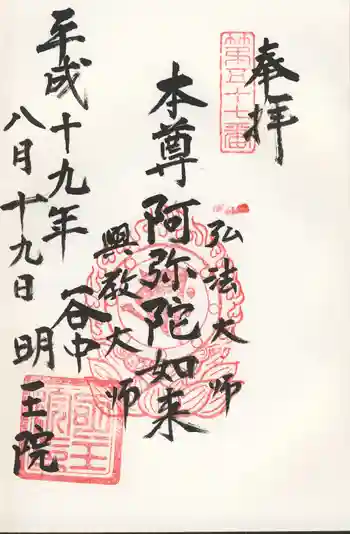 奉拝
第五十七番
弘法大師
本尊阿弥陀如来
興教大師
谷中
明王院
平成十九年
八月十九日